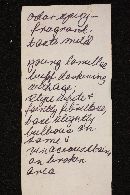 odor spicy-
fragrant.
taste mild

young lamellae
buff darkening
with age;
stipe white &
faintly fibrillose,
base slightly
bulbous on
some &
vinaceous brown
on broken
area